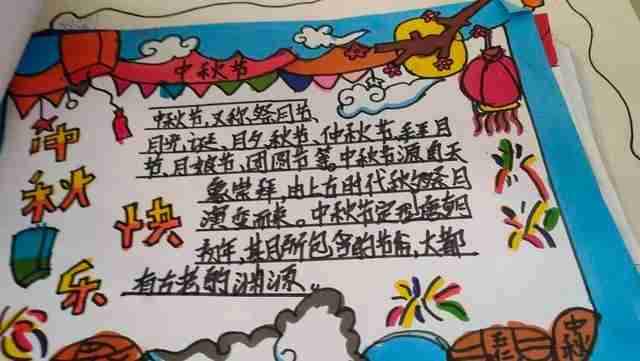 中秋节
仲秋快乐
中秋节、又称祭月节、
月光诞、月夕、秋节、仲秋节、拜月
节、月娘节、团圆节等。中秋节源自天
象崇拜,由上古时代秋夕祭月
演变而来。中秋节定型唐朝
初年,其月所包含的节俗,大都
有古老的渊源。
五
中秋